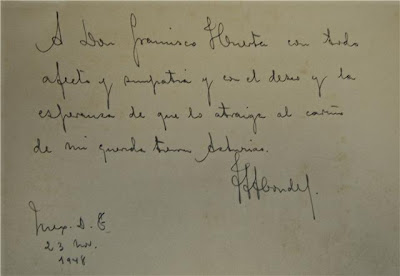 A Don Francisco Huerta con todo
afecto y simpatía y con el deseo y la
esperanza de que lo atraiga al cariño
de mi querida tierra Asturias.
Mex. D. F.
23 Nov.
1948